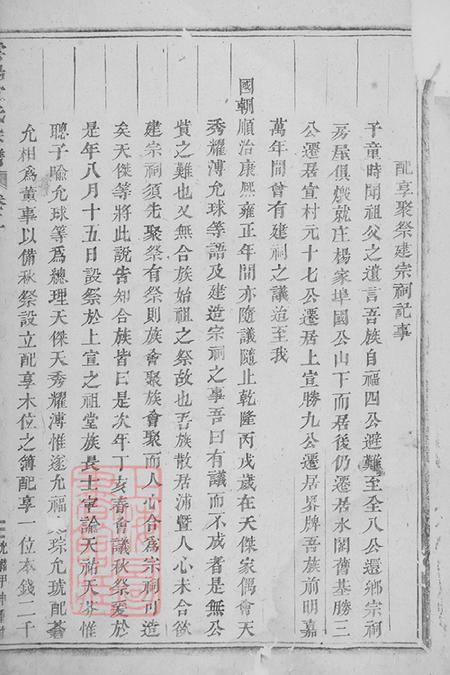 配享聚祭建宗祠記事
予童時聞祖父之遺言吾族自福四公避難至全八公遷鄉宗祠
房屋俱燬就庄楊家埠國公山下而居後仍遷居水閣舊基勝三
公遷居宣村元十七公遷居上宣勝九公遷居界牌吾族前明嘉
萬年間曾有建祠之議迨至我
國朝順治康熙雍正年間亦隨議隨止乾隆丙戌歲在天傑家偶會天
秀耀溥允球等語及建造宗祠之事吾曰有議而不成者是無公
貲之難也又無合族始祖之祭故也吾族散居浦暨人心未合欲
建宗祠須先聚祭有祭則族會聚族會聚而人心合為宗祠可造
矣天傑等將此說告知合族皆曰是次年丁亥春會議秋祭爰於
是年八月十五日設祭於上宣之祖堂族長士宰諭天祐天芬惟
聰子喻允球等為總理天傑天秀耀溥惟逐允福琮允琥配蒼
允相為董事以備秋祭設立配享木位之簿配享一位本錢二千